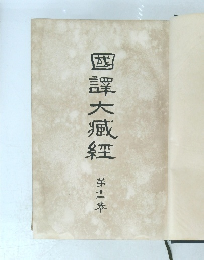 國譯大藏經
第十一卷